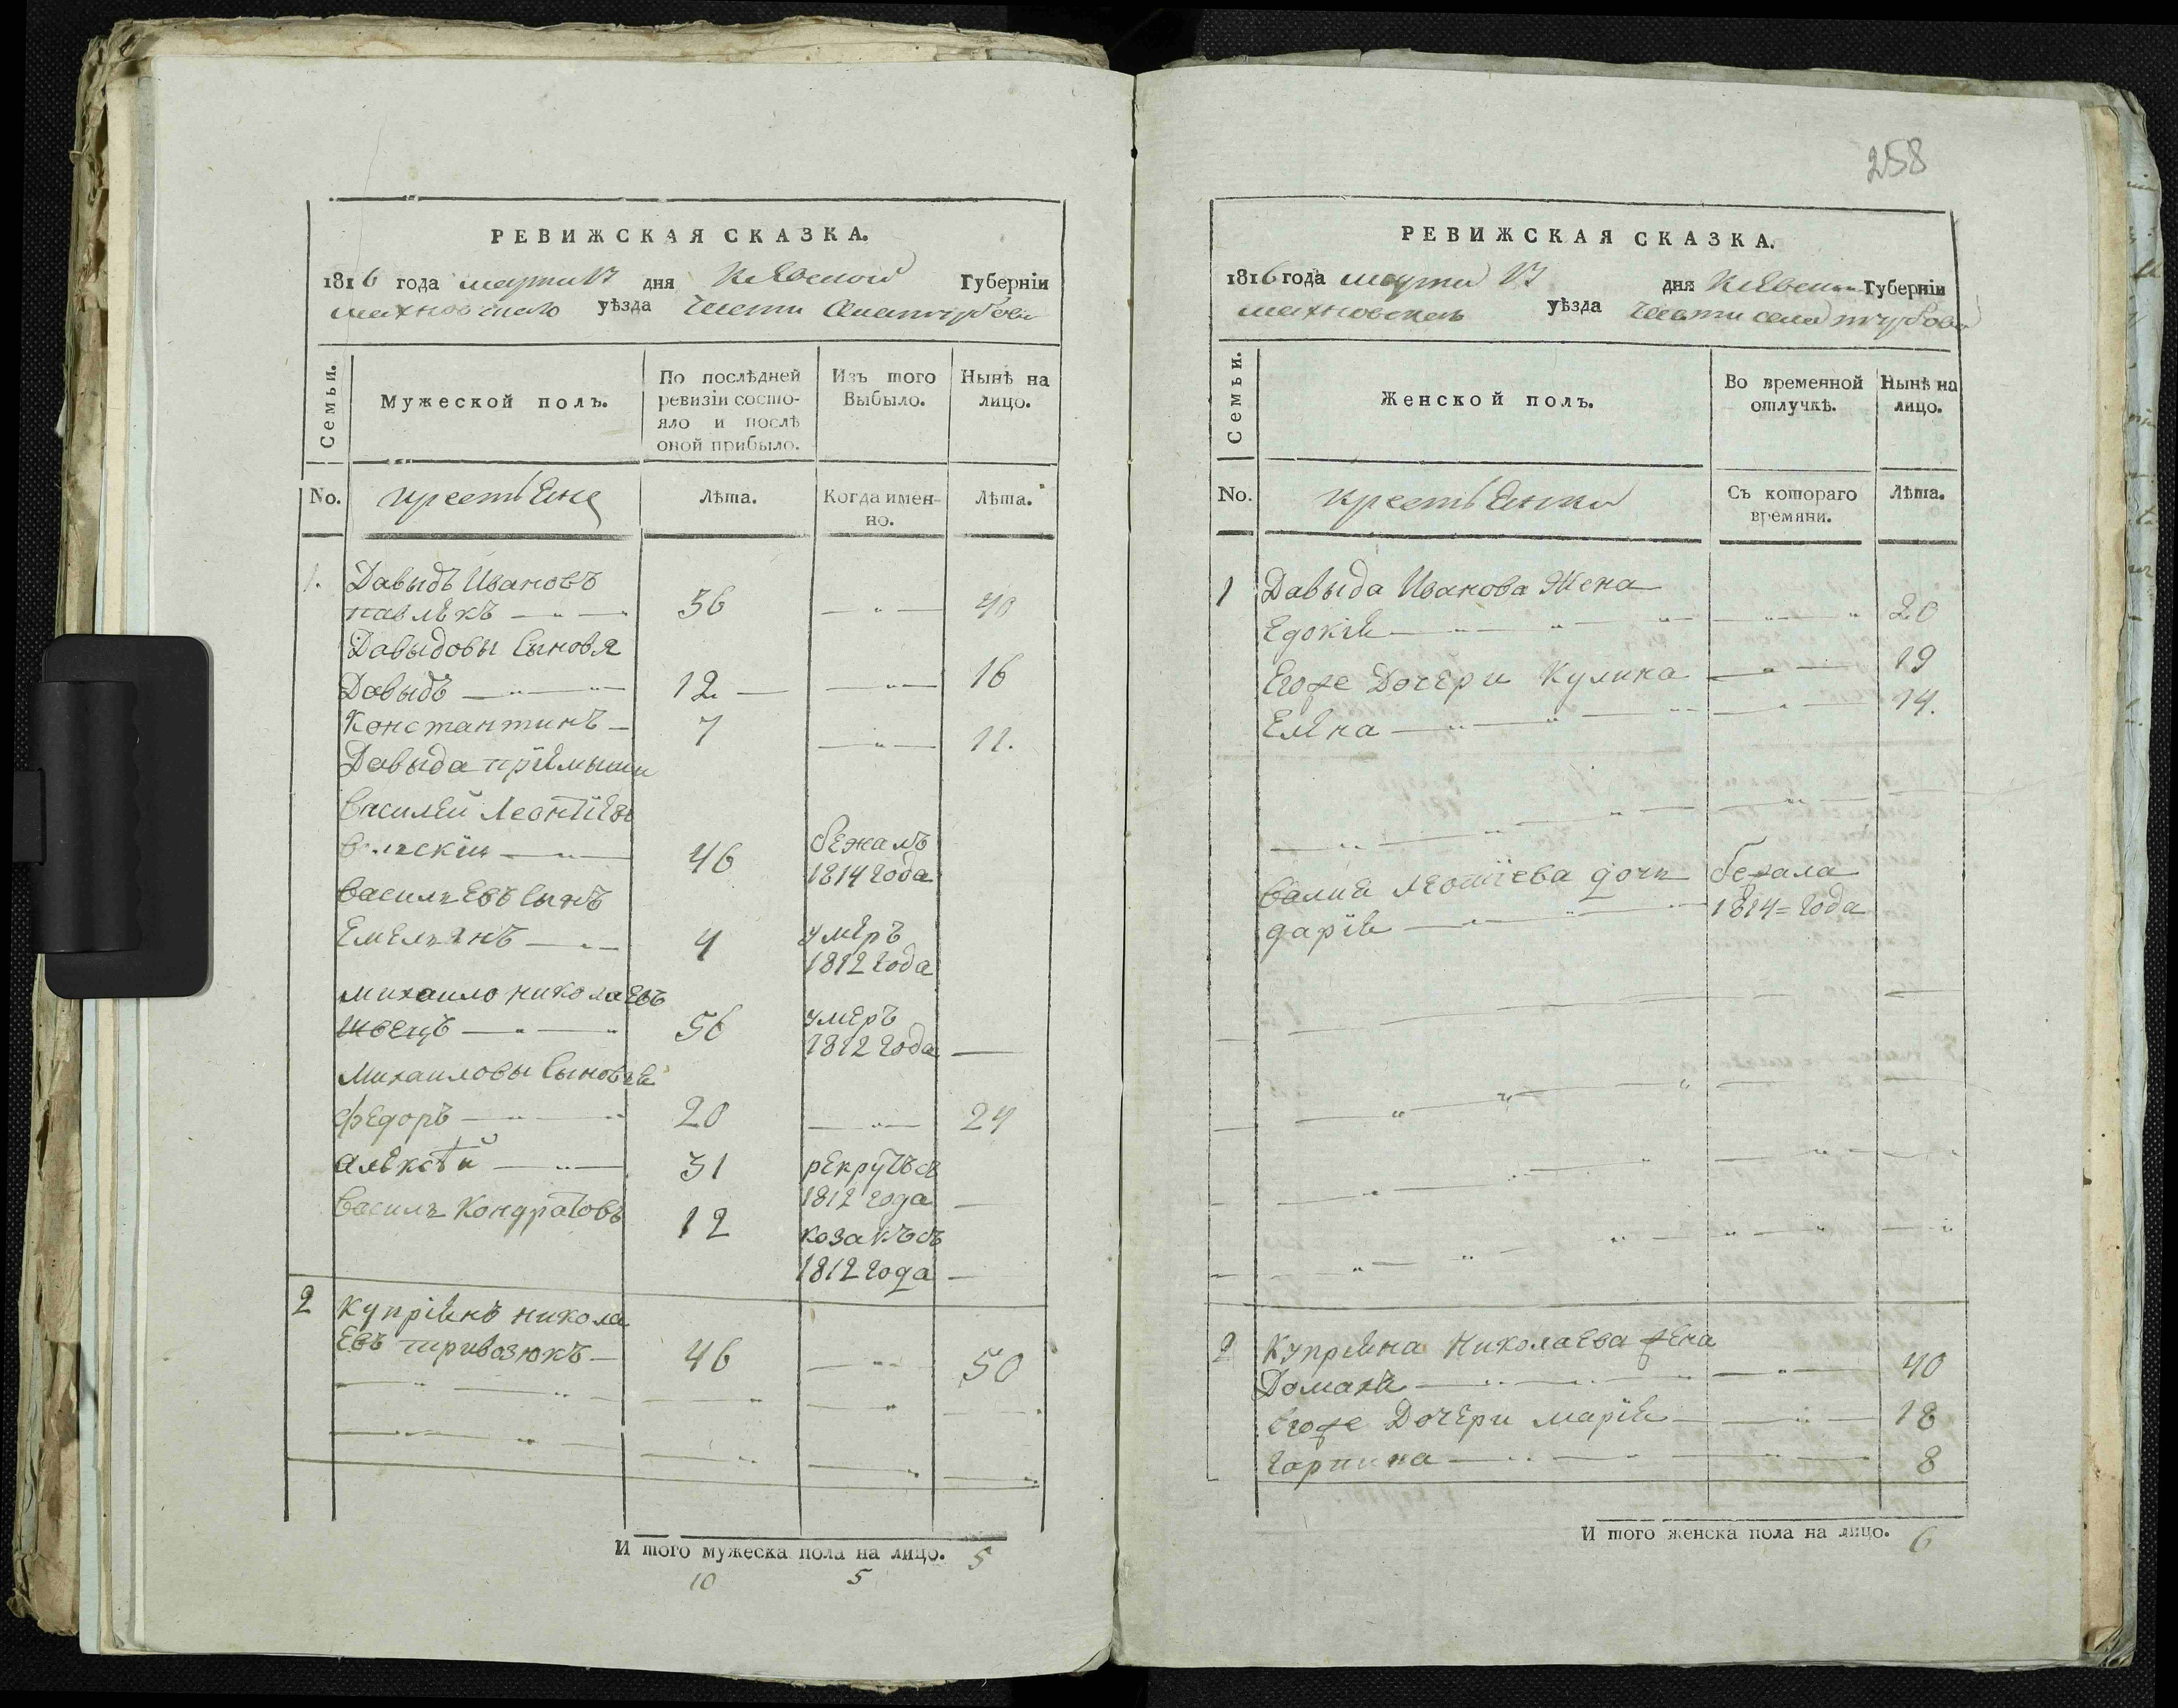 РЕВИЖСКАЯ СКАЗКА.
1816 года марта 17 дня Киевской Губерніи
махновскаго уѣзда части
Семьи.
Мужеской полъ.
По послѣдней ревизіи состояло и послѣ оной прибыло.
Изъ того Выбыло.
Нынѣ на лицо.
No. крестьяне Лѣта. Когда именно. Лѣта.
1. Давыдъ Ивановъ
павлѣкъ 36 40
Давыдовы Сыновя
Давыдъ 12 16
Константинъ 7 11.
Давыда пріймыши
Василей Леонтіевъ
46 бежалъ 1814 Года
Васильевъ Сынъ
Емельянъ 4 умеръ 1812 Года
Михаило николаевъ
швецъ 56 умеръ 1812 Года
Михаиловы Сыновья
федоръ 20 24
алексѣй 31 1812 года
Василь Кондратовъ 12
1812 Года
2 Купріянъ никола
евъ тривозюкъ 46 50
И того мужеска пола на лицо. 5
10 5
258
РЕВИЖСКАЯ СКАЗКА.
1816 года марта 17 дня Киевской Губерніи
махновскаго уѣзда части села турбова
Семьи.
Женской полъ.
Во временной отлучкѣ.
Нынѣ на лицо.
No. крестьянки Съ котораго времяни. Лѣта.
1 Давыда Иванова Жена
Едокія 20
Егоже Дочери Кулина 19
Елена 14.
Леонтіева дочь бежала
дарія 1814 = Года
2 Купріяна Николаева жена
Домаха 40
Егоже Дочери марія 18
Гарпина 8
И того женска пола на лицо. 6